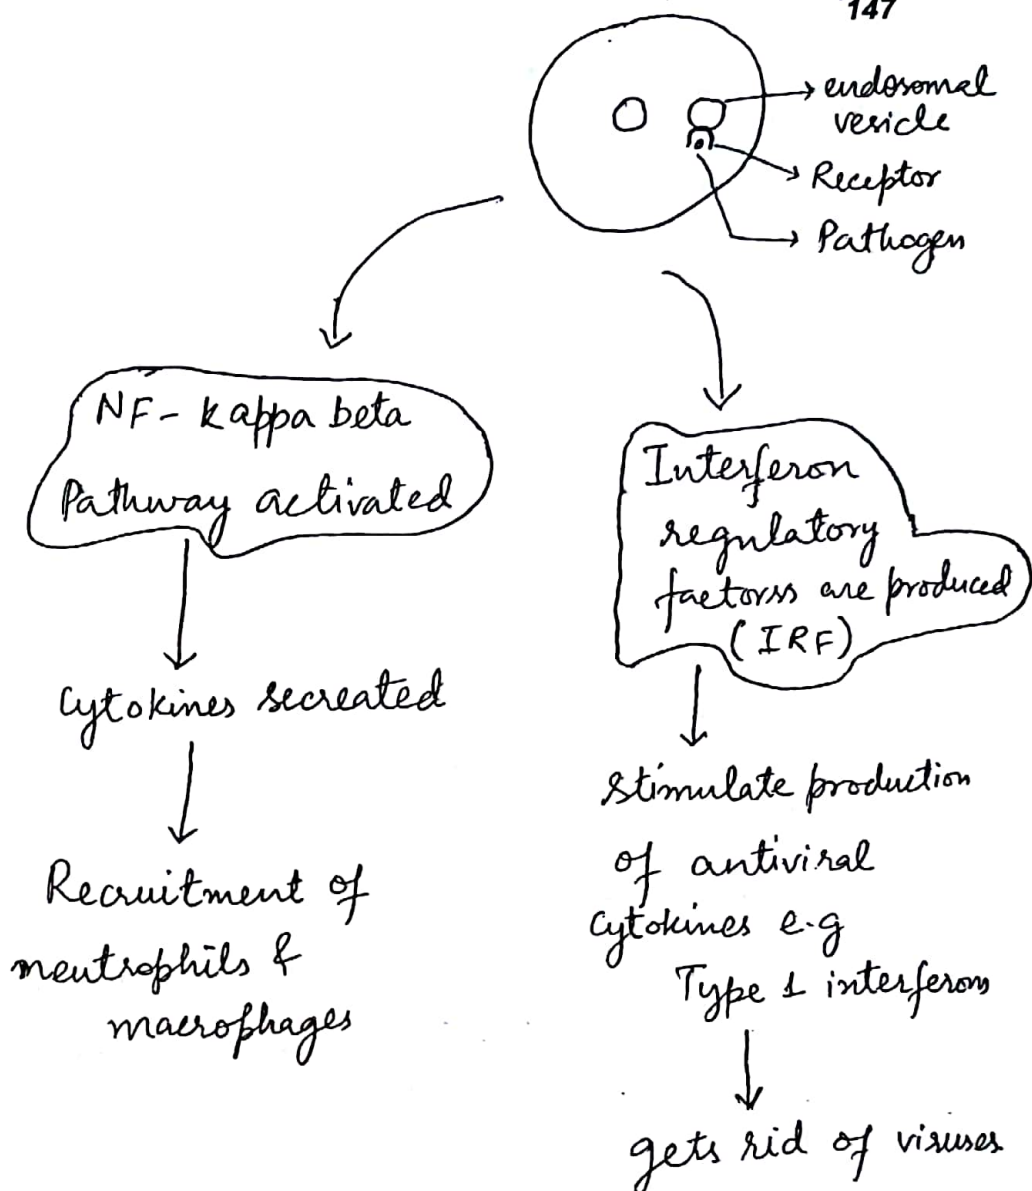 147
endosomal
vesicle
Receptor
Pathogen
NF- kappa beta
Pathway activated
Cytokines secreated
Recruitment of
neutrophils &
macrophages
Interferon
regulatory
factorss are produced
(IRF)
stimulate production
of antiviral
cytokines e.g
Type 1 interferons
gets rid of viruses